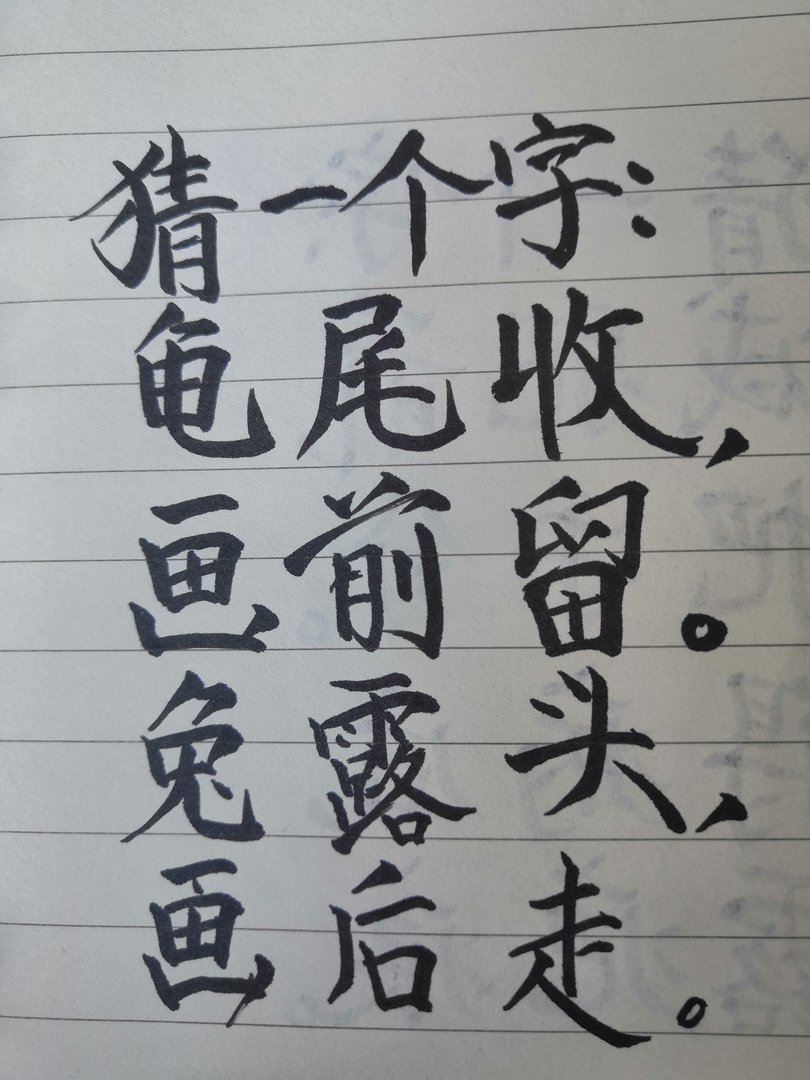 猜一个字:
龟尾收,
画前留。
兔露头,
画后走。